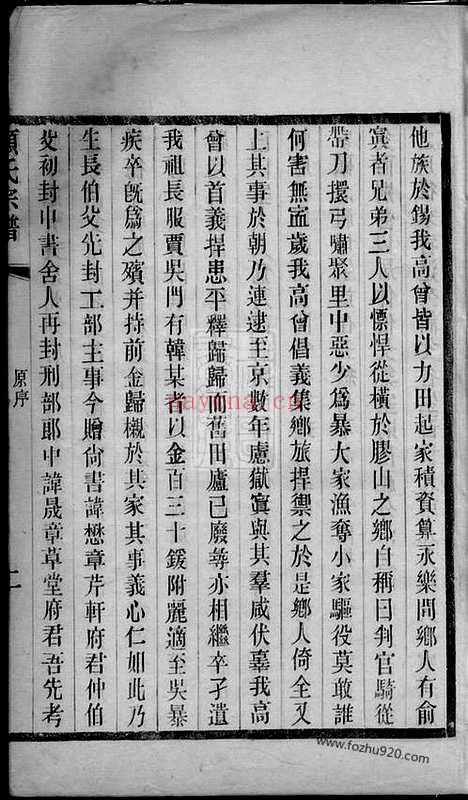 他族於錫我高曾皆以力田起家積資算永樂間鄉人有俞
寘者兄弟三人以慓悍從橫於膠山之鄉自稱曰判官騎從
帶刀擐弓嘯聚里中惡少爲暴大家漁奪小家驅役莫敢誰
何害無寍歲我高曾倡義集鄉旅捍禦之於是鄉人倚全又
上其事於朝乃連逮至京數年慮獄寘與其羣咸伏辜我高
曾以首義捍患平釋歸歸而舊田廬已廢等亦相繼卒孑遺
我祖長服賈吳門有韓某者以金百三十鍰附麗適至吳暴
疾卒旣爲之殯并持前金歸櫬於其家其事義心仁如此乃
生長伯父先封工部主事今贈尚書諱懋章芹軒府君仲伯
父初封中書舍人再封刑部郎中諱晟章草堂府君吾先考
顧氏宗譜
原序
二
nayona.cn
www.fozhu920.com